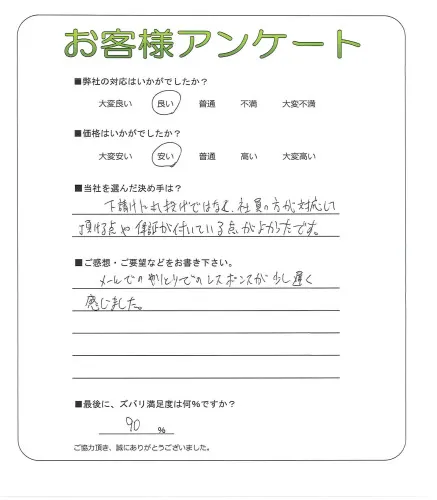 お客様アンケート
■弊社の対応はいかがでしたか？
大変良い 良い 普通 不満 大変不満
■価格はいかがでしたか？
大変安い 安い 普通 高い 大変高い
■当社を選んだ決め手は？
下請けに丸投げではなく、社員の方が対応して
頂ける点や保証が付いている点がよかったです。
■ご感想・ご要望などをお書き下さい。
メールでのやりとりでのレスポンスが少し遅く
感じました。
■最後に、ズバリ満足度は何％ですか？
90 %
ご協力頂き、誠にありがとうございました。